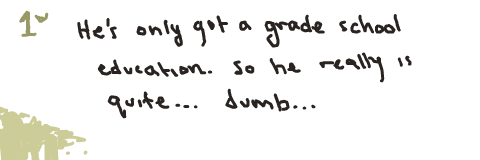 1~ He's only got a grade school
education. So he really is
quite... dumb...